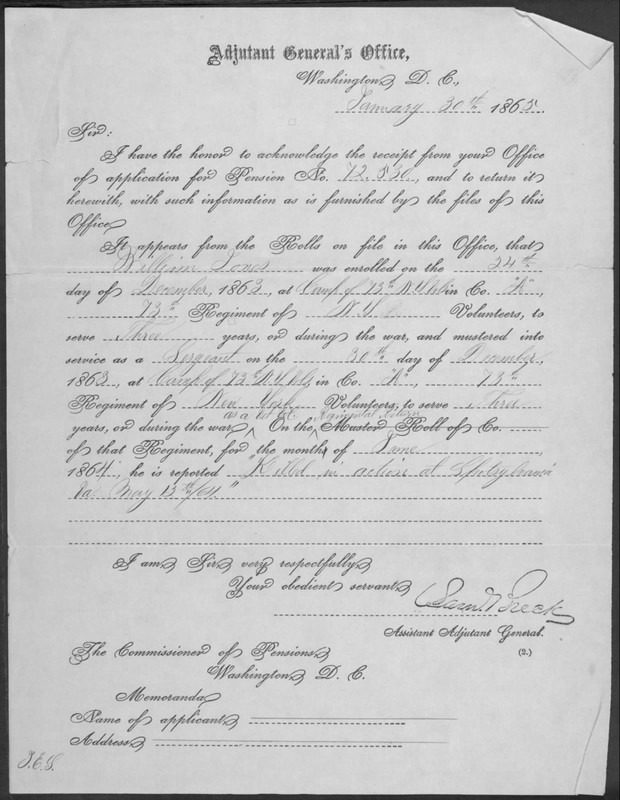 Adjutant General's Office,
Washington, D. C.,
January 30th 1865.
Sir:
I have the honor to acknowledge the receipt from your Office
of application for Pension No. 72.530, and to return it
herewith, with such information as is furnished by the files of this
Office.
It appears from the Rolls on file in this Office, that
William Jones was enrolled on the 24th
day of December, 1863, at Camp of 73d N.Y. Vols in Co. "K",
73d Regiment of N.Y. Volunteers, to
serve Three years, or during the war, and mustered into
service as a Sergeant on the 30th day of December,
1863, at Camp of 73d N.Y. Vols in Co. "K", 73d
Regiment of New York Volunteers, to serve Three
as a 1st Lt. Regimental Return
years, or during the war. On the Muster Roll of Co.
of that Regiment, for the month of June,
1864, he is reported "Killed in action at Spotsylvania
Va. May 13th/64."
I am, Sir, very respectfully,
Your obedient servant,
Saml Breck
Assistant Adjutant General.
The Commissioner of Pensions,
(2.)
Washington, D. C.
Memoranda
Name of applicant,
Address,
J.E.S.